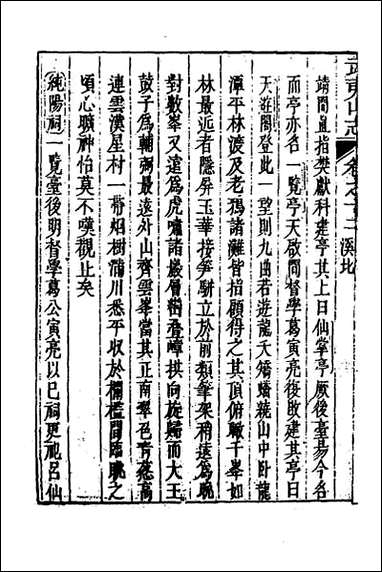 武夷山志　卷之十二　溪北
靖間直指樊獻科建亭其上日仙掌亭厥後臺易今名
而亭亦名一覽亭天啟間督學葛寅亮復改建其亭日
天遊閣登此一望則九曲若遊龍夭矯繞山中卧龍
潭平林渡及老鴉諸灘皆招顧得之其頂俯瞰千峯如
林最近者隱屏玉華接笋駢立於前類筆架稍遠爲晚
對數峯又遠爲虎嘯諸巖層巒叠嶂拱向旋歸而大王
鼓子爲輔弼最遠外山齊雲峯當其正南翠色青葱高
連雲漢星村一帶烟樹蒲川悉平收於欄檻間臨眺之
頃心曠神怡莫不嘆觀止矣
純陽祠一覽臺後明督學葛公寅亮以巳祠更祀呂仙